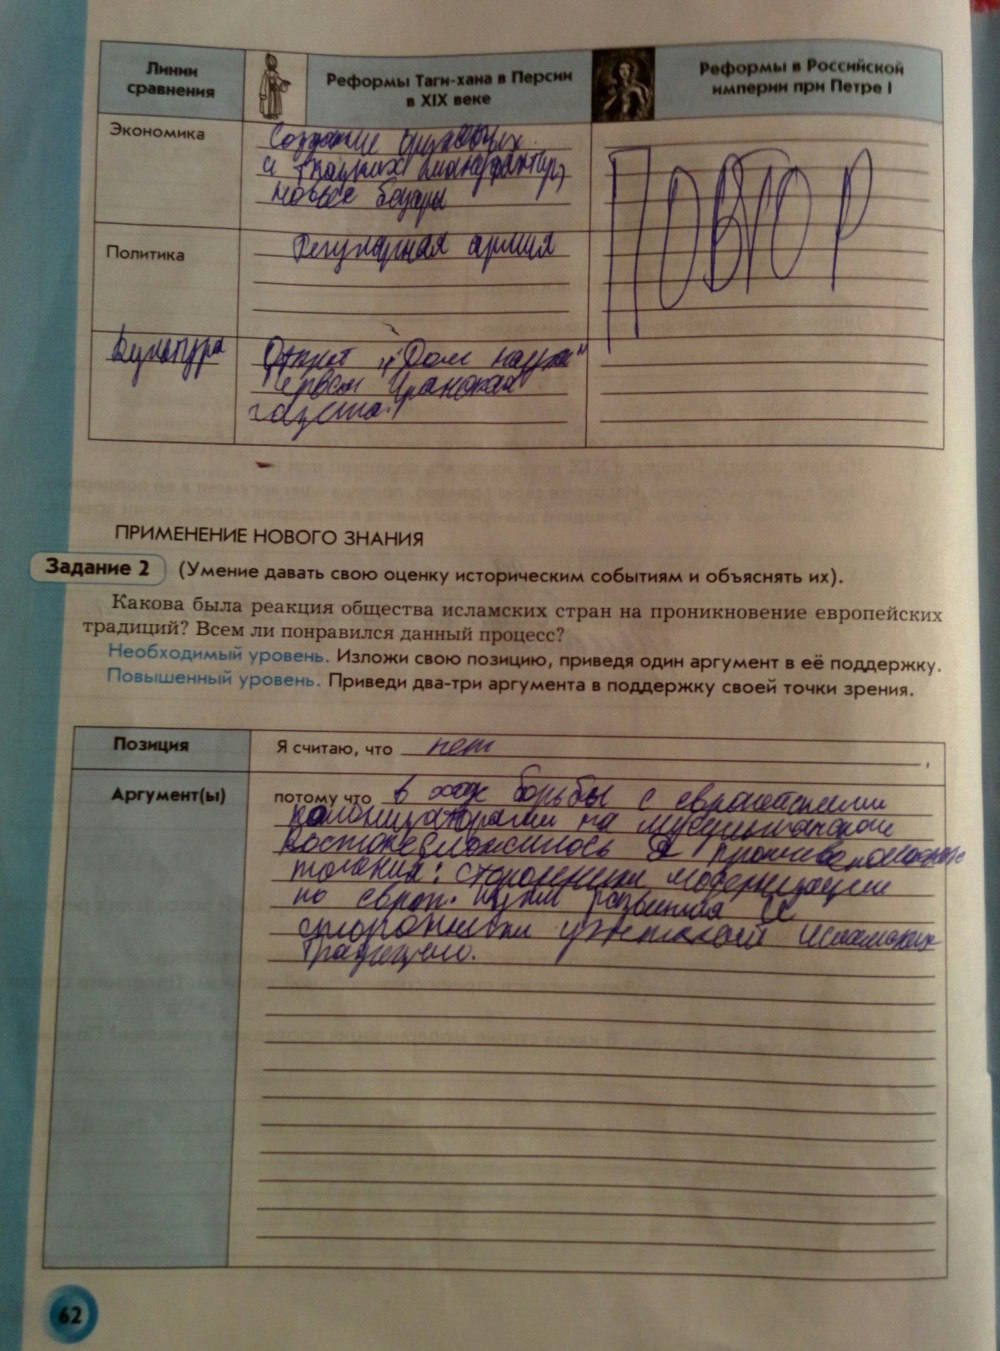 Линии сравнения
Реформы Таги-хана в Персии в XIX веке
Реформы в Российской империи при Петре I
Экономика
Создание бумажных
и ткацких мануфактур,
новые базары
ПОВТОР
Политика
Регулярная армия
Культура
Открыт "Дом наук"
Первая Иранская
газета.
ПРИМЕНЕНИЕ НОВОГО ЗНАНИЯ
Задание 2 (Умение давать свою оценку историческим событиям и объяснять их).
Какова была реакция общества исламских стран на проникновение европейских
традиций? Всем ли понравился данный процесс?
Необходимый уровень. Изложи свою позицию, приведя один аргумент в её поддержку.
Повышенный уровень. Приведи два-три аргумента в поддержку своей точки зрения.
Позиция
Я считаю, что нет ,
Аргумент(ы)
потому что в ходе борьбы с европейскими
колонизаторами на мусульманском
востоке сложилось 2
течения: сторонники модернизации
по европ. пути развития и
сторонники исламских
традиций.
62